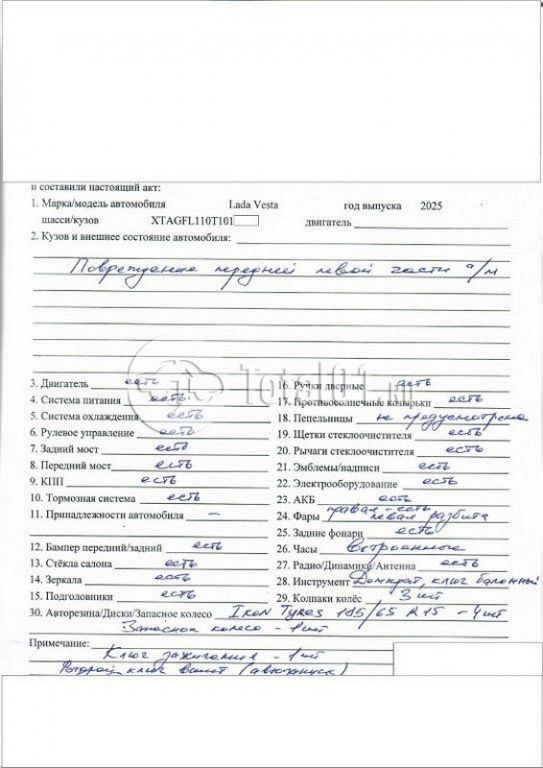 и составили настоящий акт:
1. Марка/модель автомобиля Lada Vesta год выпуска 2025
шасси/кузов XTAGFL110T101 двигатель
2. Кузов и внешнее состояние автомобиля:
Повреждение передней левой части а/м
Total01.ru
3. Двигатель есть 16. Ручки дверные есть
4. Система питания есть 17. Противосолнечные козырьки есть
5. Система охлаждения есть 18. Пепельницы не предусмотрена
6. Рулевое управление есть 19. Щетки стеклоочистителя есть
7. Задний мост есть 20. Рычаги стеклоочистителя есть
8. Передний мост есть 21. Эмблемы/надписи есть
9. КПП есть 22. Электрооборудование есть
10. Тормозная система есть 23. АКБ есть
11. Принадлежности автомобиля – 24. Фары правая - есть левая разбита
25. Задние фонари есть
12. Бампер передний/задний есть 26. Часы Встроенные
13. Стёкла салона есть 27. Радио/Динамики/Антенна есть
14. Зеркала есть 28. Инструмент Домкрат, ключ балонный
15. Подголовники есть 29. Колпаки колёс 3 шт
30. Авторезина/Диски/Запасное колесо Ikon Tyres 185/65 R15 – 4 шт
Запасное колесо - 1 шт
Примечание:
Ключ зажигания - 1 шт
Второй ключ вшит (автозапуск)